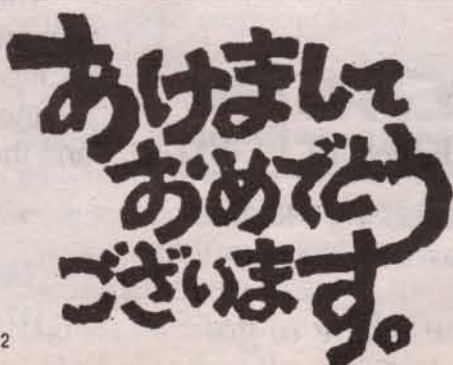 あけまして
おめでとう
ございます。
2